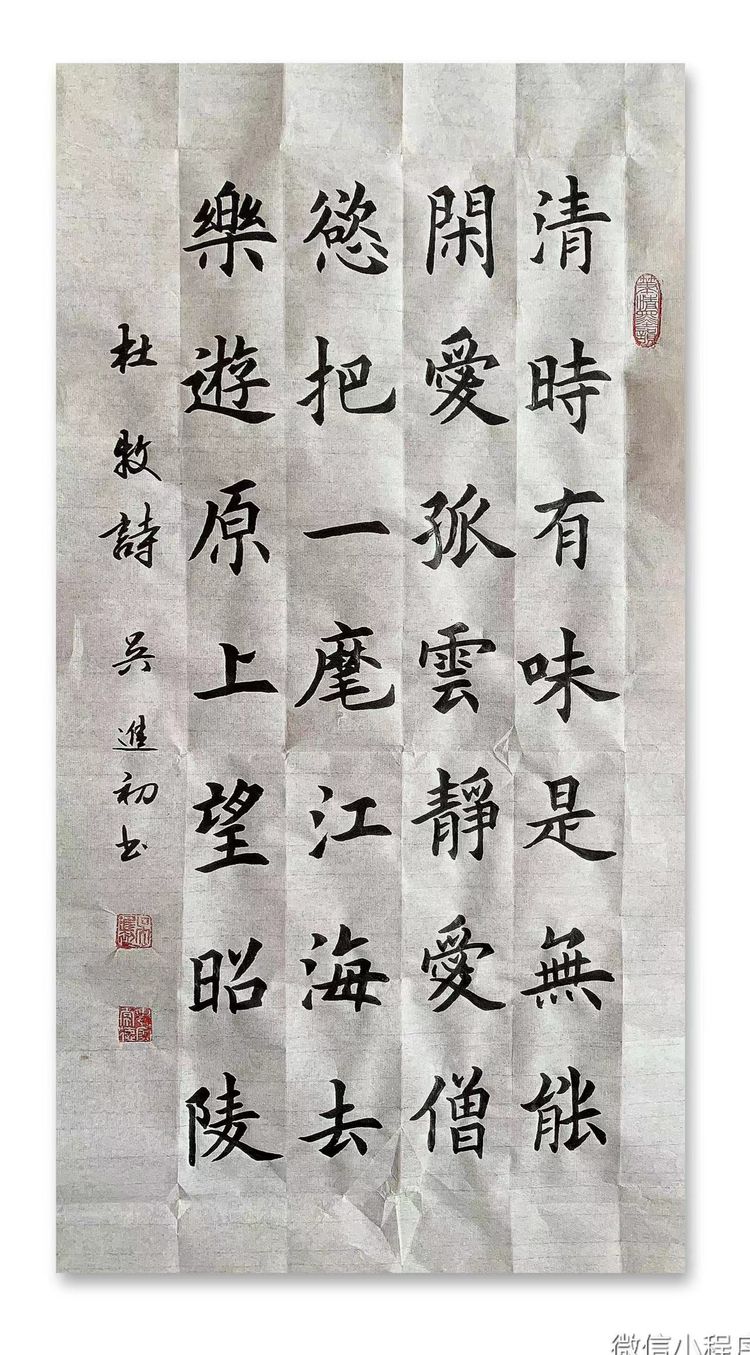 清時有味是無能
閑愛孤雲靜愛僧
慾把一麾江海去
樂遊原上望昭陵
杜牧詩 吳進初书
微信小程序